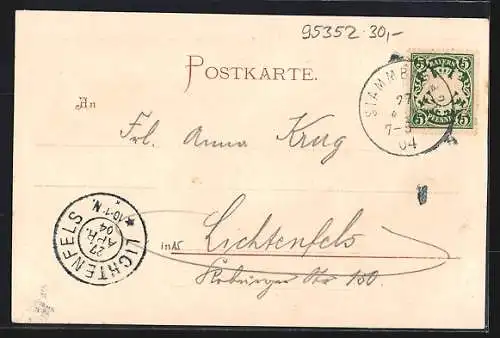 95352 30,-
POSTKARTE.
BAYERN
5 5
PFENNIG
STAMMB
27
7-8
04
An
Frl. Anna Krug
in Lichtenfels
Coburger Str 150.
LICHTENFELS
10-1.N.
27
APR.
04